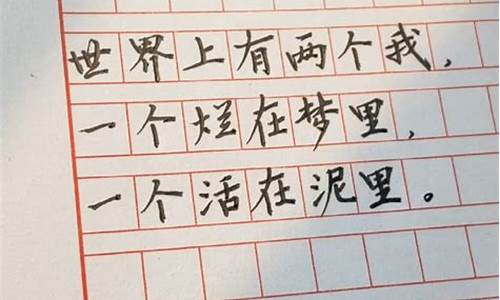 世界上有两个我,
一个烂在梦里,
一个活在泥里。